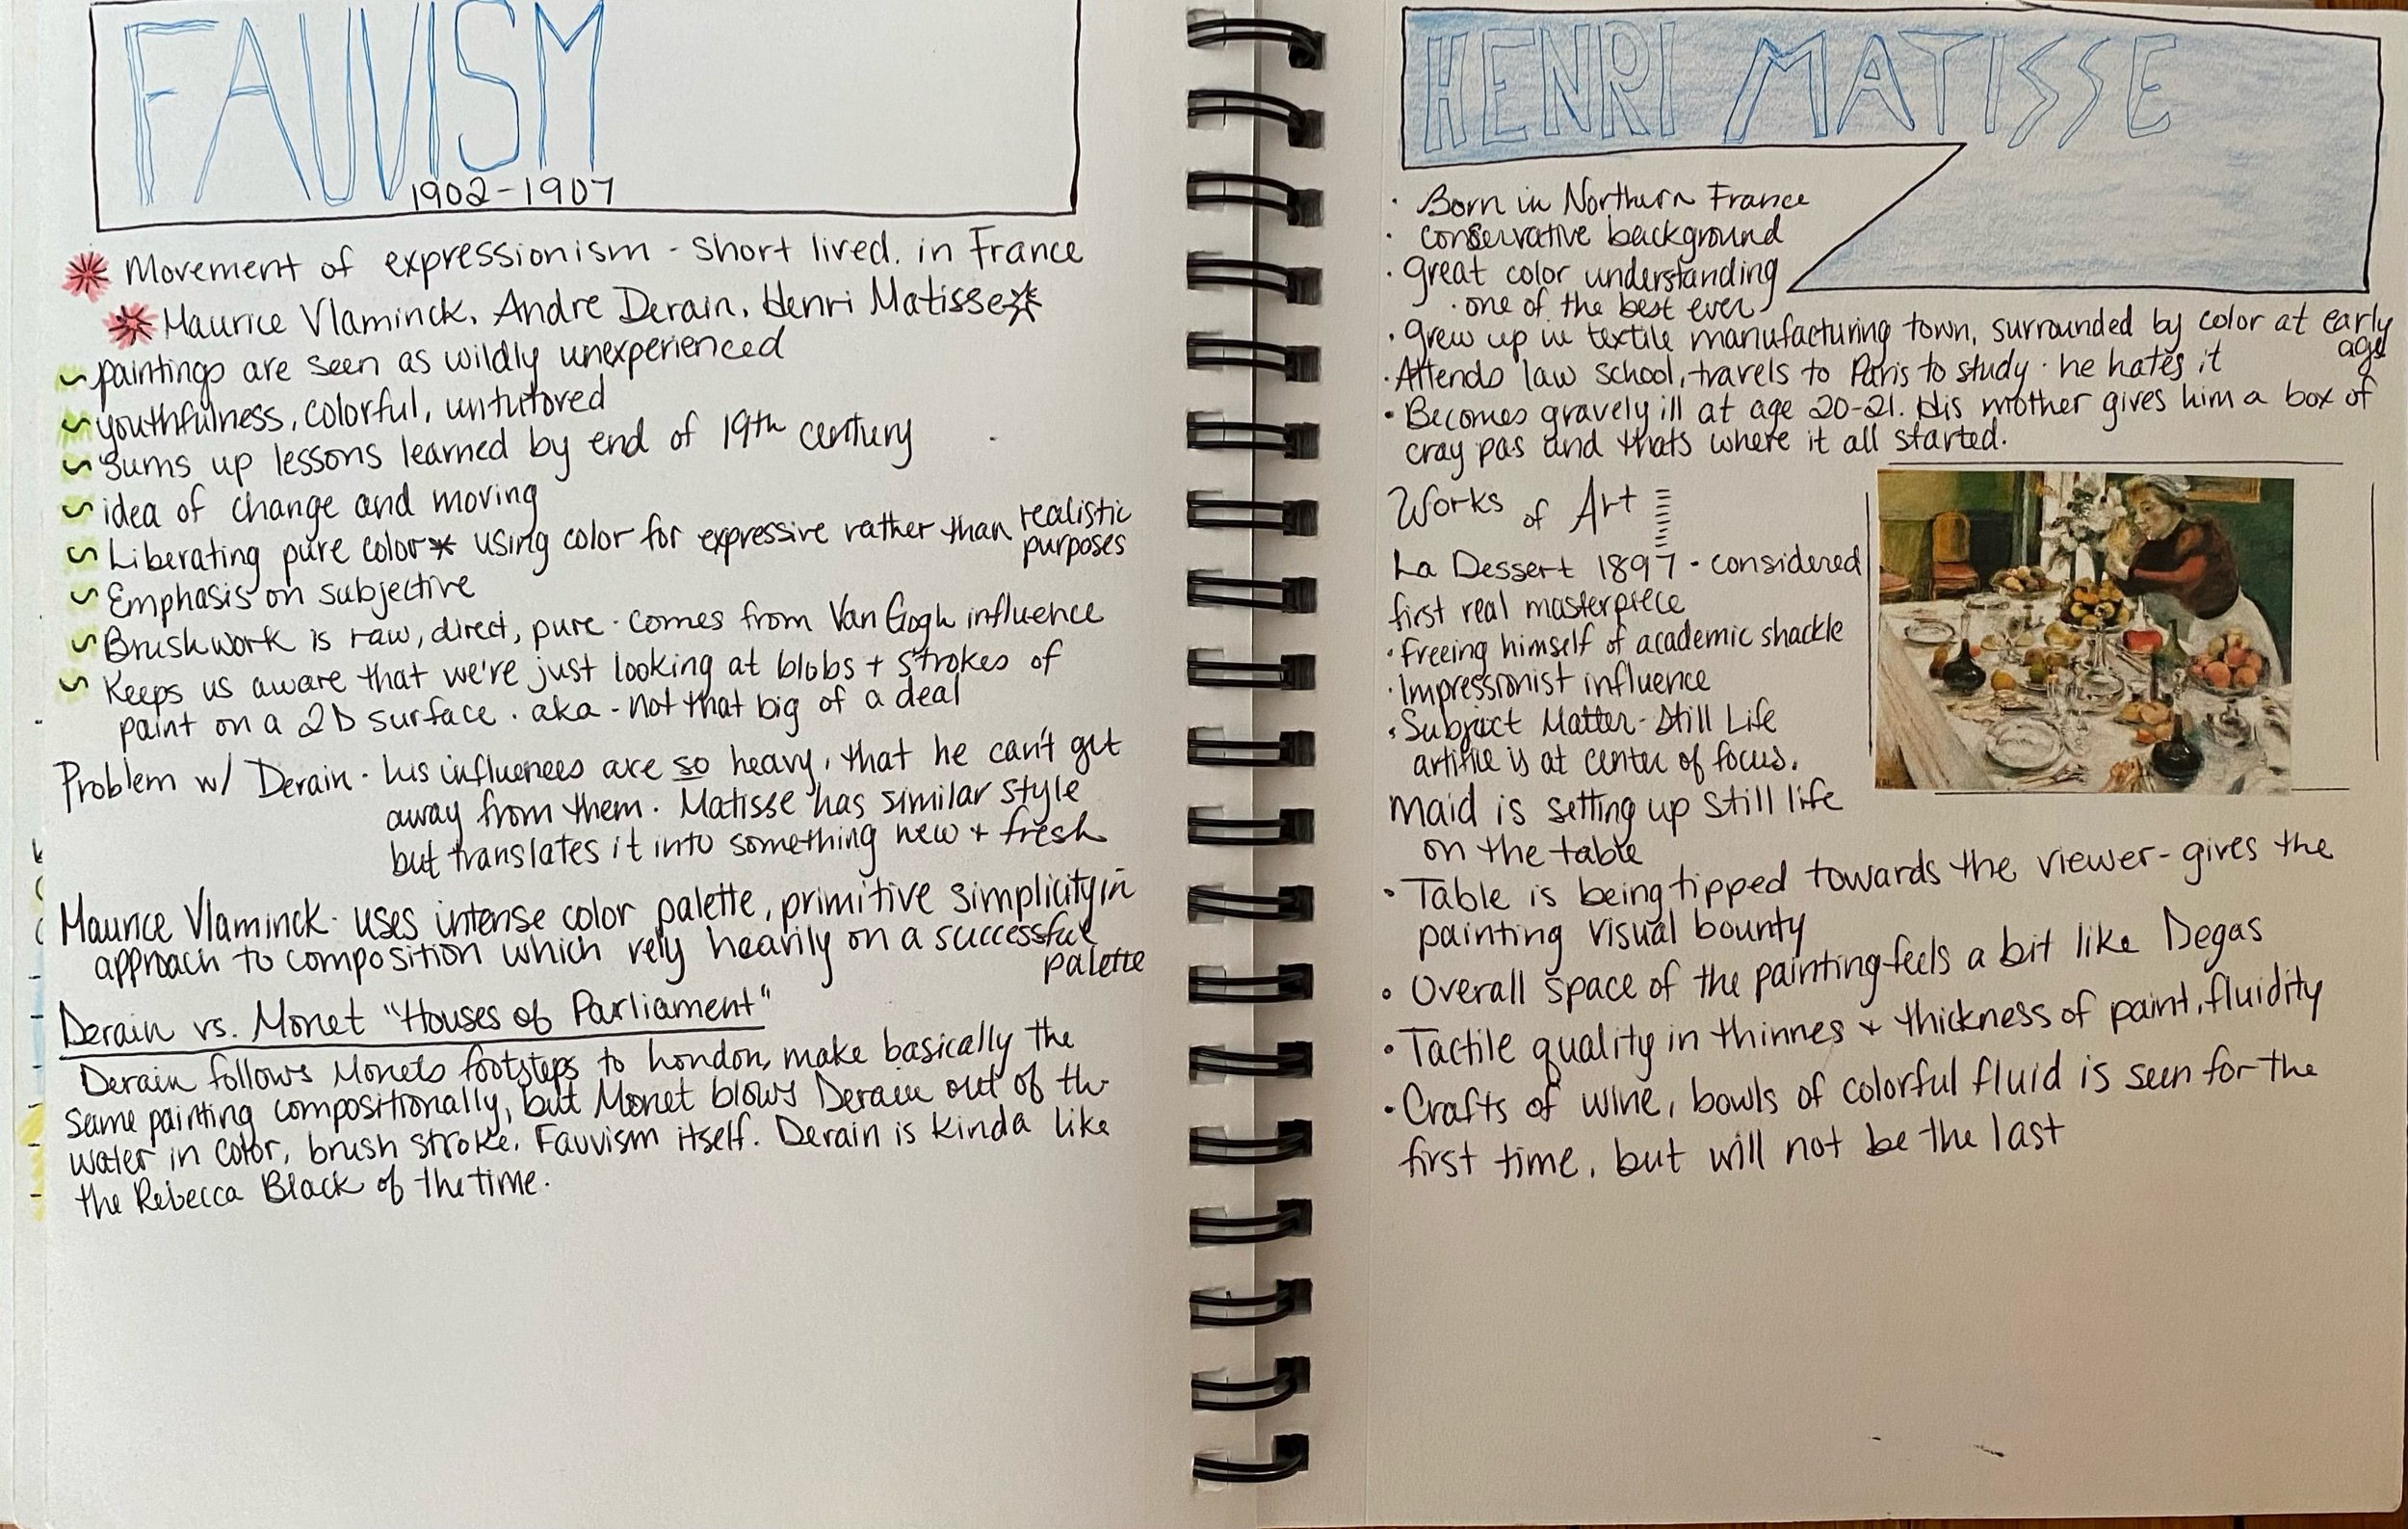 FAUVISM
1902-1907
Movement of expressionism - short lived. in France
Maurice Vlaminck, Andre Derain, Henri Matisse
paintings are seen as wildly unexperienced
youthfulness, colorful, untutored
Sums up lessons learned by end of 19th century
idea of change and moving
Liberating pure color* using color for expressive rather than realistic
purposes
Emphasis on subjective
Brushwork is raw, direct, pure · comes from Van Gogh influence
Keeps us aware that we're just looking at blobs + strokes of
paint on a 2D surface · aka - not that big of a deal
Problem w/ Derain · his influences are so heavy, that he can't get
away from them. Matisse has similar style
but translates it into something new + fresh
Maurice Vlaminck · uses intense color palette, primitive simplicity in
approach to composition which rely heavily on a successful
palette
Derain vs. Monet "Houses of Parliament"
Derain follows Monets footsteps to London, make basically the
same painting compositionally, but Monet blows Derain out of the
water in color, brush stroke, Fauvism itself. Derain is kinda like
the Rebecca Black of the time.
HENRI MATISSE
· Born in Northern France
· conservative background
· great color understanding
· one of the best ever
· Grew up in textile manufacturing town, surrounded by color at early
age
· Attends law school, travels to Paris to study · he hates it
· Becomes gravely ill at age 20-21. His mother gives him a box of
cray pas and thats where it all started.
Works of Art
La Dessert 1897 - considered
first real masterpiece
· freeing himself of academic shackle
· Impressionist influence
· Subject Matter - Still Life
artifice is at center of focus.
maid is setting up still life
on the table
· Table is being tipped towards the viewer - gives the
painting visual bounty
· Overall space of the painting feels a bit like Degas
· Tactile quality in thinnes + thickness of paint, fluidity
· Crafts of wine, bowls of colorful fluid is seen for the
first time, but will not be the last